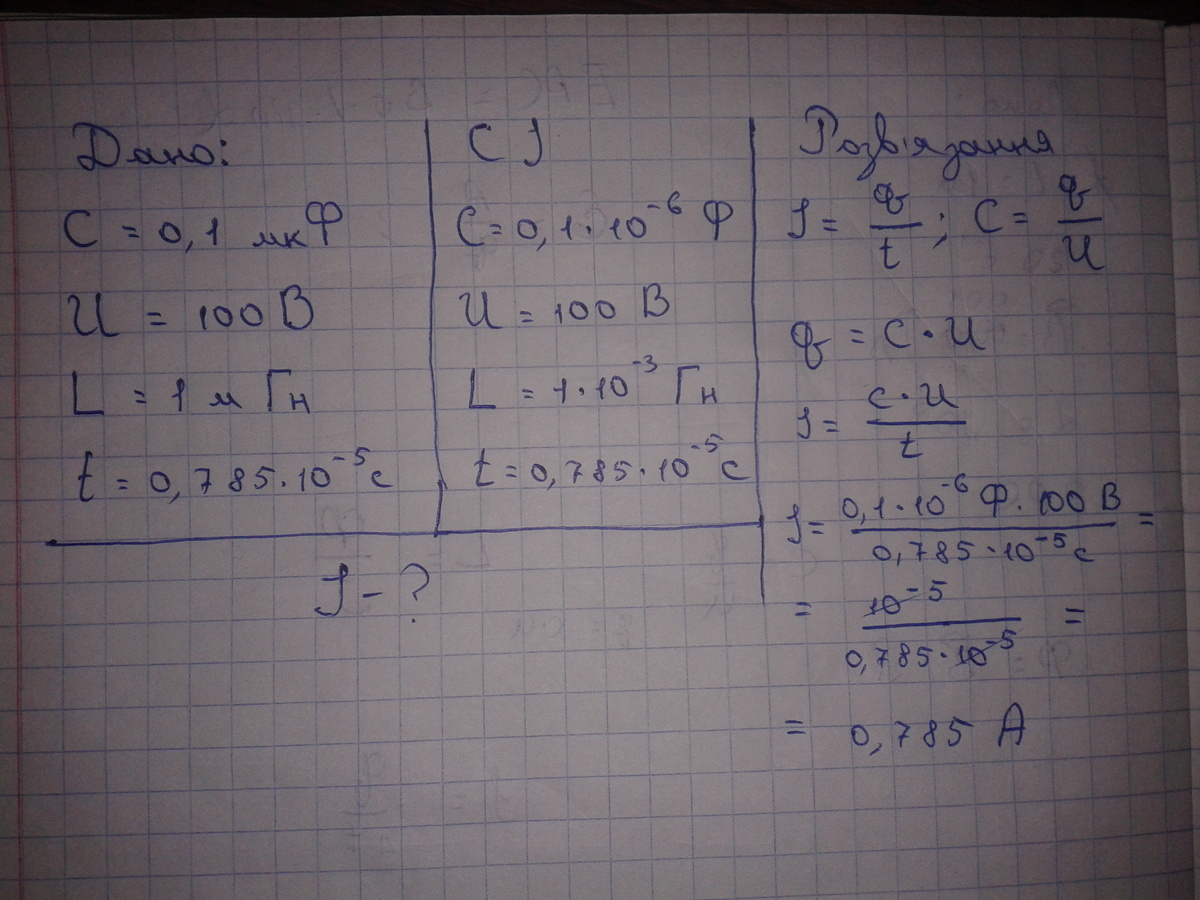 Дано:
C = 0,1 мкФ
U = 100 В
L = 1 м Гн
t = 0,785·10⁻⁵с
І - ?
СІ
C = 0,1·10⁻⁶ Ф
U = 100 В
L = 1·10⁻³ Гн
t = 0,785·10⁻⁵с
Розв'язання
I = q/t ; C = q/U
q = C·U
I = C·U/t
I = 0,1·10⁻⁶ Ф·100 В / 0,785·10⁻⁵с =
= 10⁻⁵ / 0,785·10⁻⁵ =
= 0,785 А